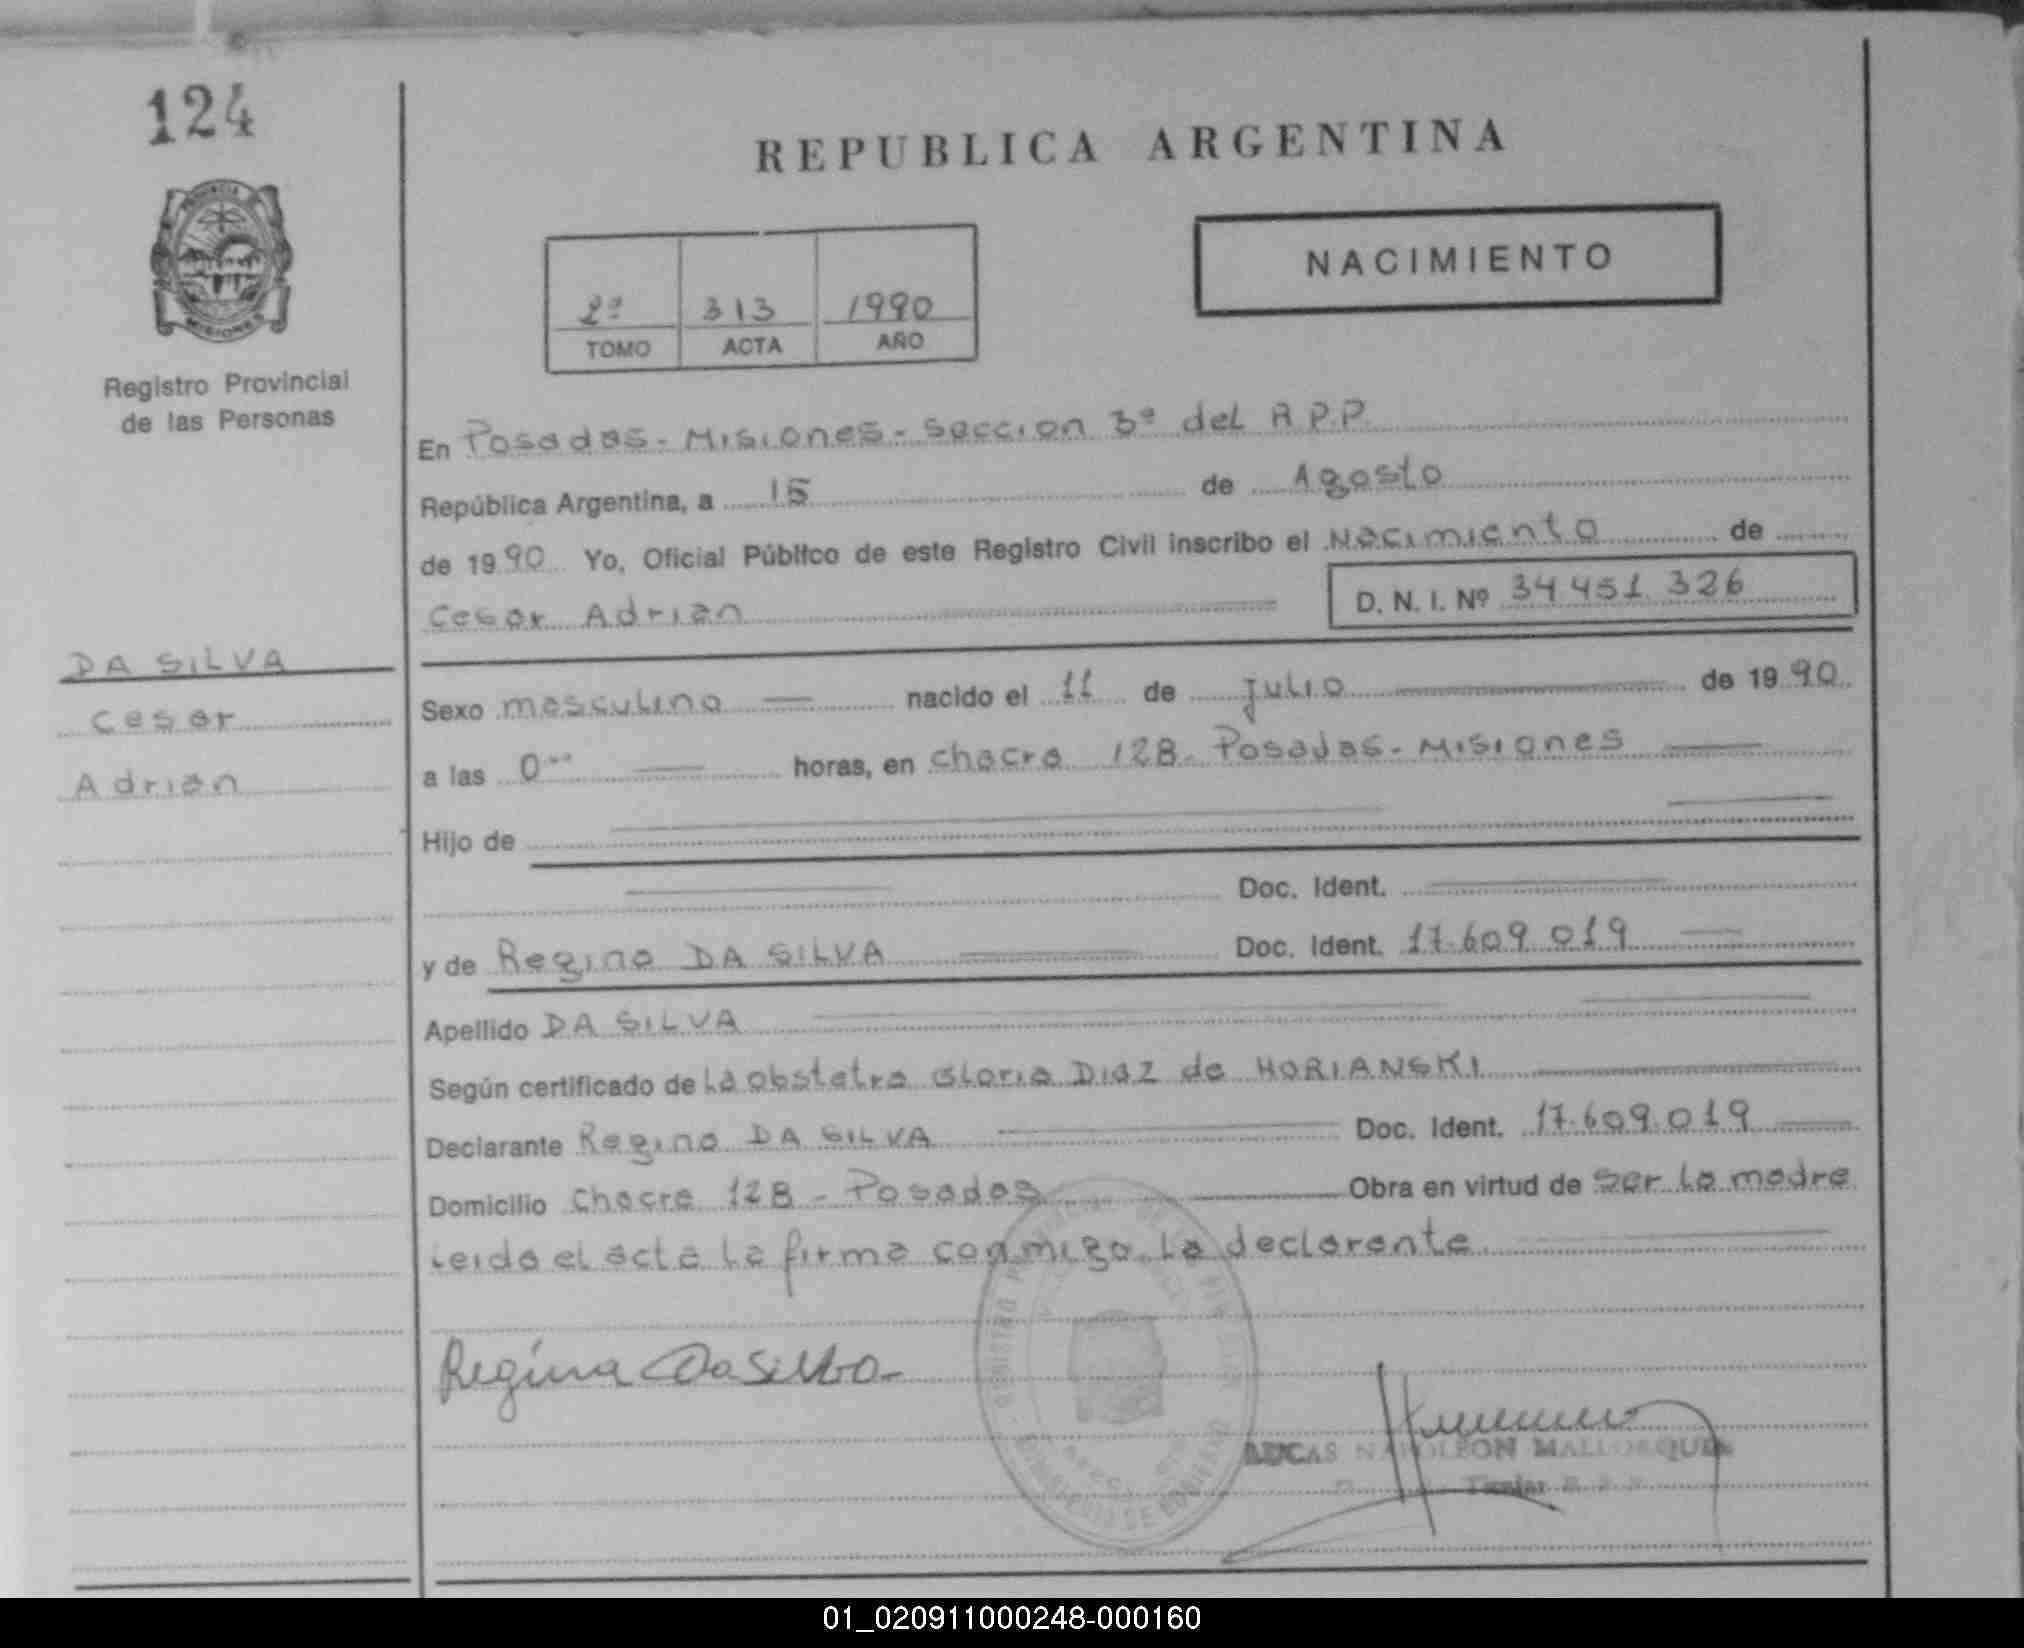 124
REPUBLICA ARGENTINA
PROVINCIA DE
MISIONES
Registro Provincial
de las Personas
NACIMIENTO
2º 313 1990
TOMO ACTA AÑO
En Posadas - Misiones - Seccion 3ª del R.P.P.
República Argentina, a 15 de Agosto
de 1990 Yo, Oficial Público de este Registro Civil inscribo el Nacimiento de
Cesar Adrián D. N. I. Nº 34 451 326
DA SILVA
Cesar
Adrián
Sexo masculino nacido el 11 de julio de 1990
a las 0 horas, en chacra 128 - Posadas - Misiones
Hijo de
Doc. Ident.
y de Regina DA SILVA Doc. Ident. 17.609.019
Apellido DA SILVA
Según certificado de La obstetra Gloria Diaz de HORIANSKI
Declarante Regina DA SILVA Doc. Ident. 17.609.019
Domicilio Chacra 128 - Posadas Obra en virtud de ser la madre
Leida el acta la firma conmigo la declarante
Regina Da Silva
LUCAS NAPOLEON MALLORQUIN
Titular
01_020911000248-000160